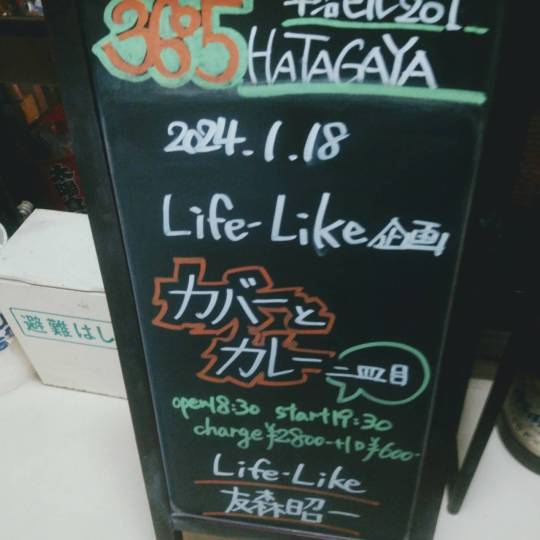 365
ビル201
HATAGAYA
2024.1.18
Life-Like企画
カバーと
カレー
二皿目
open18:30 start19:30
charge¥2800-+1D¥600-
Life-Like
友森昭一
避難はし